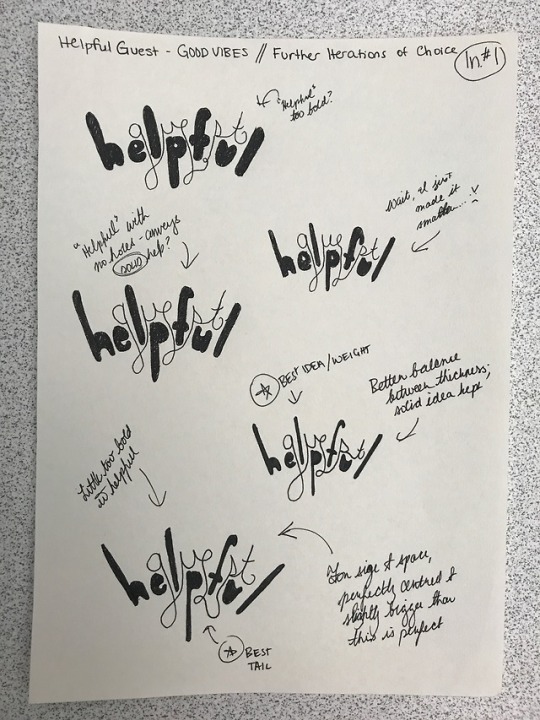 Helpful Guest - GOOD VIBES // Further Iterations of Choice
In. #1
"Helpful"
too bold?
guest
helpful
Wait, I just
made it
smaller...
guest
helpful
"Helpful" with
no holes - conveys
solid help?
guest
helpful
BEST IDEA/WEIGHT
Better balance
between thickness;
solid idea kept
guest
helpful
Little too bold
in helpful
guest
helpful
For size & space,
perfectly centred &
slightly bigger than
this is perfect
BEST
TAIL